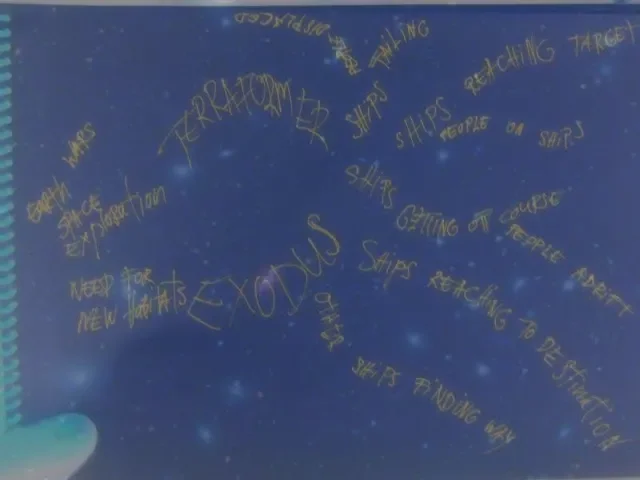 DISPLACED
SHIPS FAILING
REACHING TARGET
TERRAFORMER
SHIPS
PEOPLE ON SHIPS
EARTH WARS
SPACE
EXPLORATION
SHIPS
GETTING OFF COURSE
PEOPLE ADRIFT
NEED FOR
NEW HABITATS
EXODUS
SHIPS REACHING TO DESTINATION
OTHER
SHIPS FINDING WAY